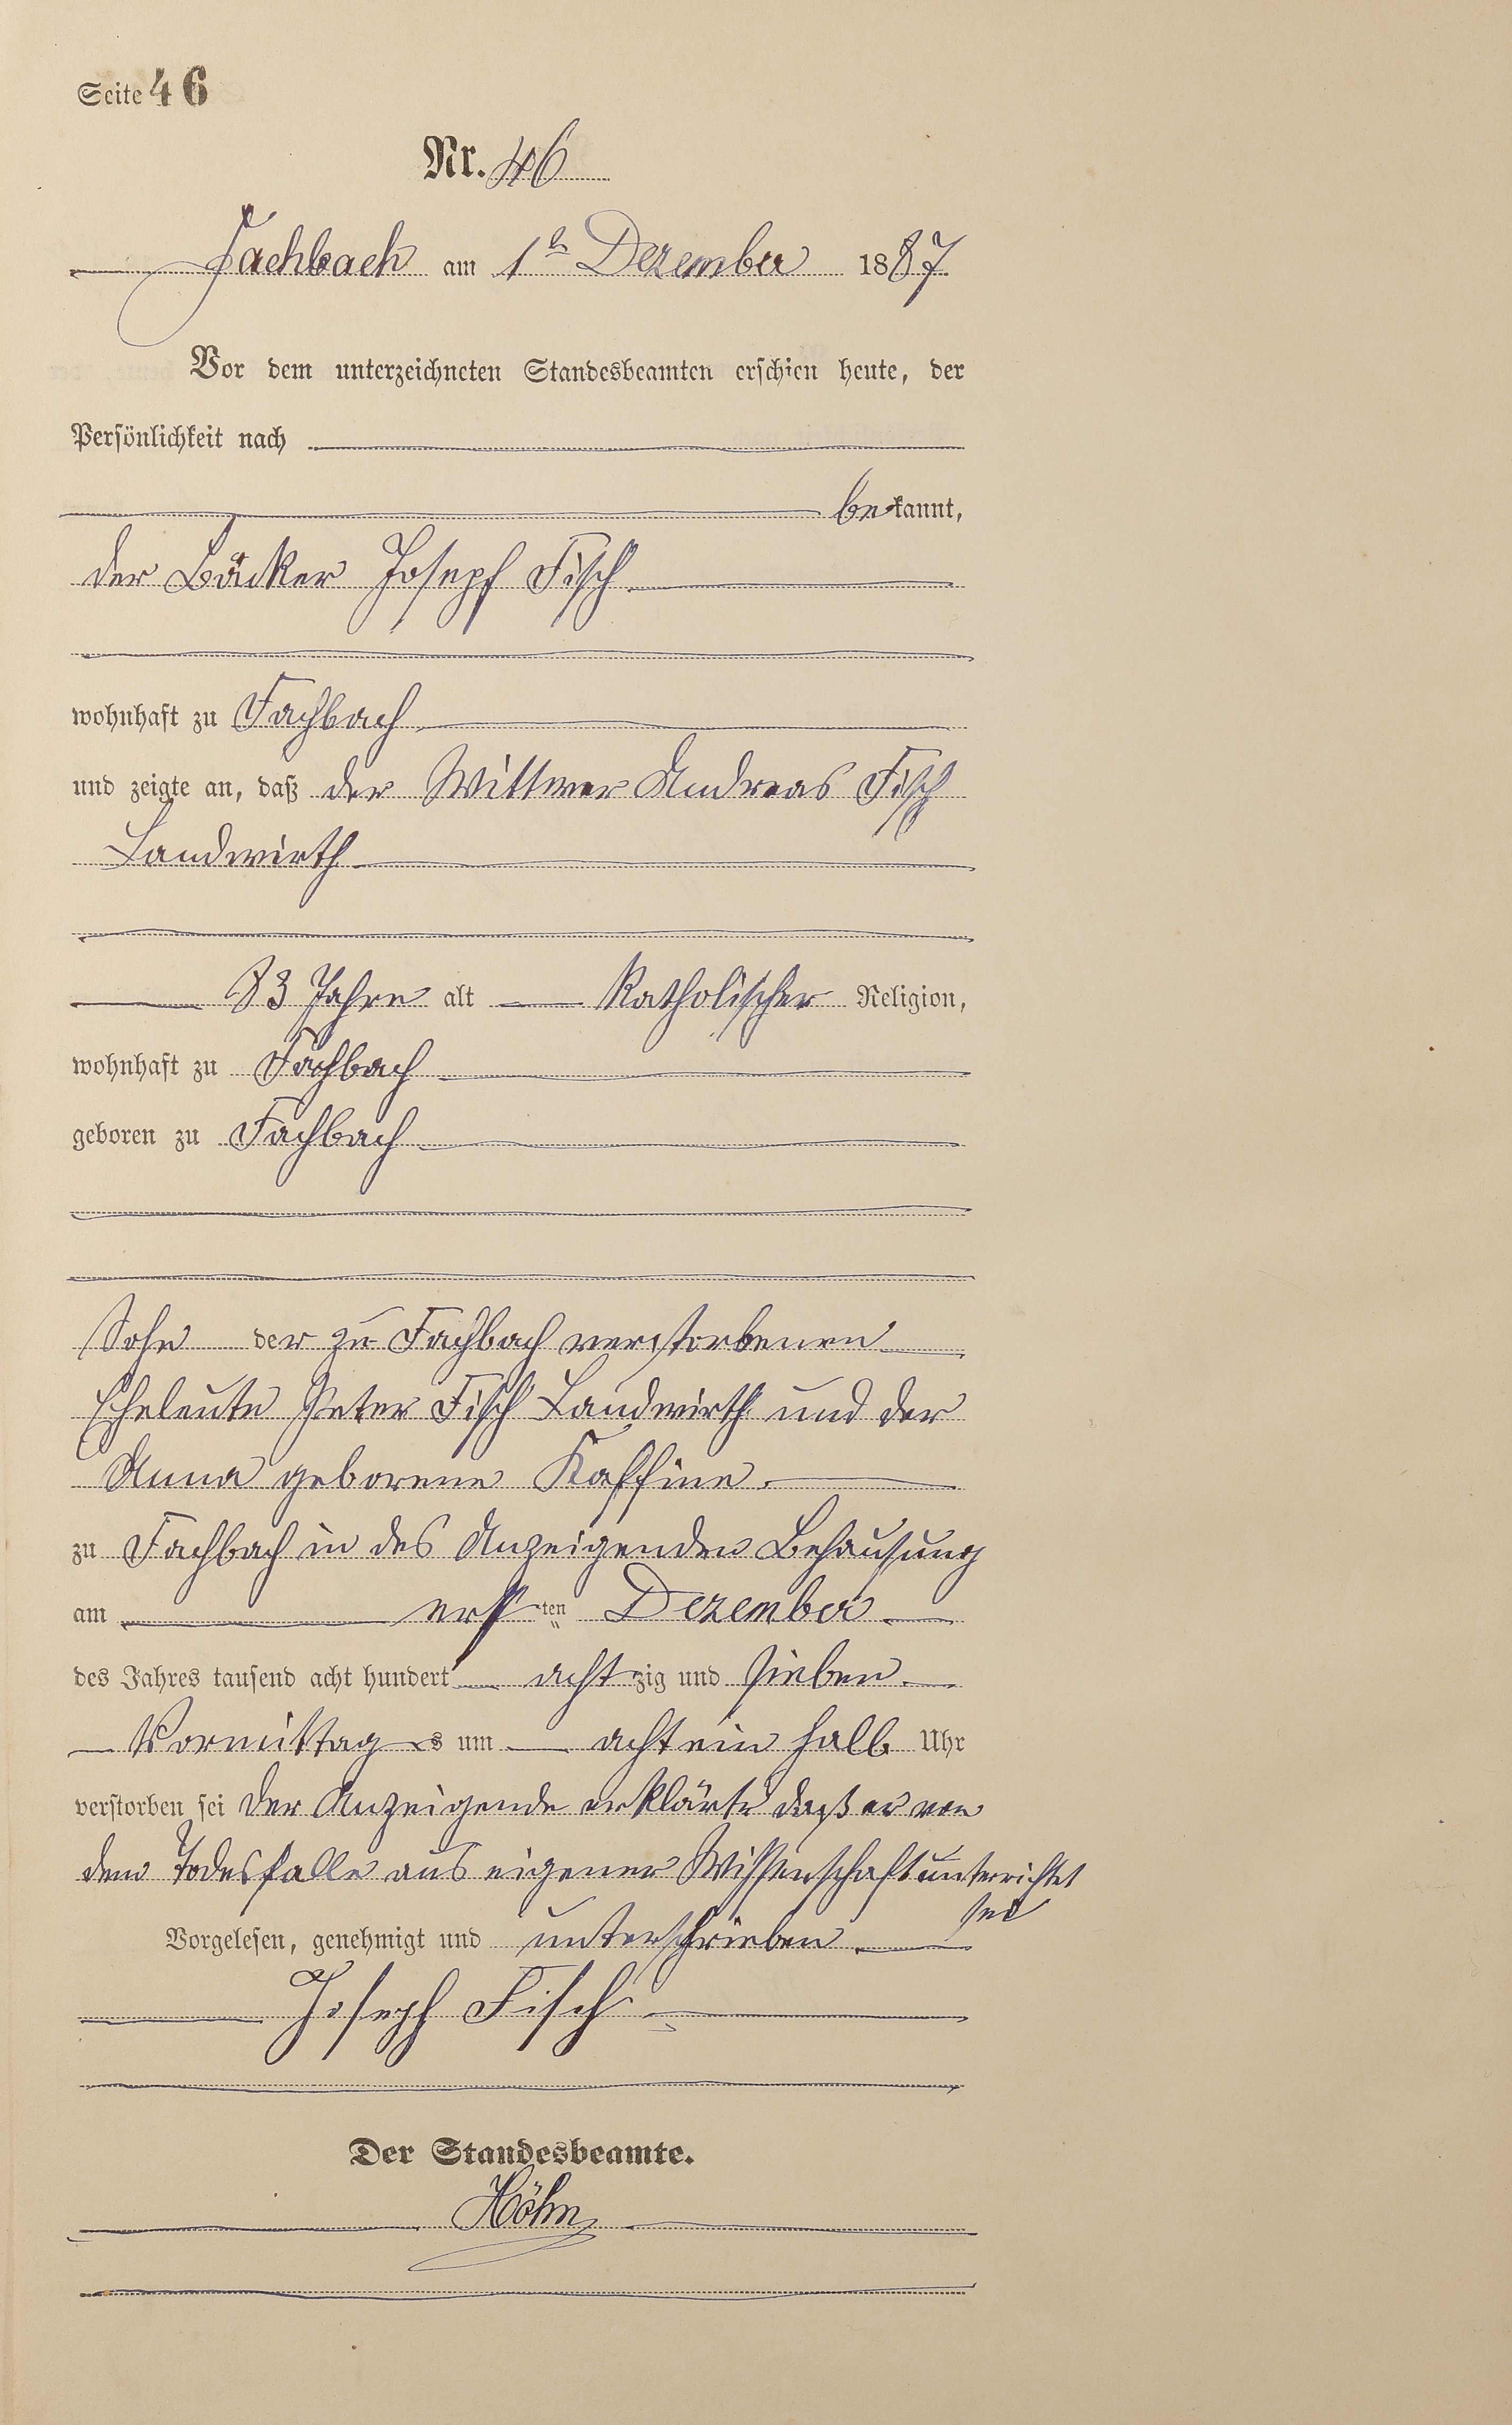 Seite 46
Nr. 46
Fachbach am 1ten Dezember 1887.
Vor dem unterzeichneten Standesbeamten erschien heute, der
Persönlichkeit nach
bekannt,
der Bäcker Joseph Fisch
wohnhaft zu Fachbach
und zeigte an, daß der Wittwer Andreas Fisch
Landwirth
83 Jahre alt Katholischer Religion,
wohnhaft zu Fachbach
geboren zu Fachbach
Sohn der zu Fachbach verstorbenen
Eheleute Peter Fisch Landwirth und der
Anna geborene Kaffine.
zu Fachbach in des Anzeigenden Behausung
am ersten Dezember
des Jahres tausend acht hundert achtzig und sieben
Vormittags um acht ein halb Uhr
verstorben sei Der Anzeigende erklärte daß er von
dem Todesfalle aus eigener Wissenschaft unterrichtet
sei
Vorgelesen, genehmigt und unterschrieben
Joseph Fisch
Der Standesbeamte.
Höhn